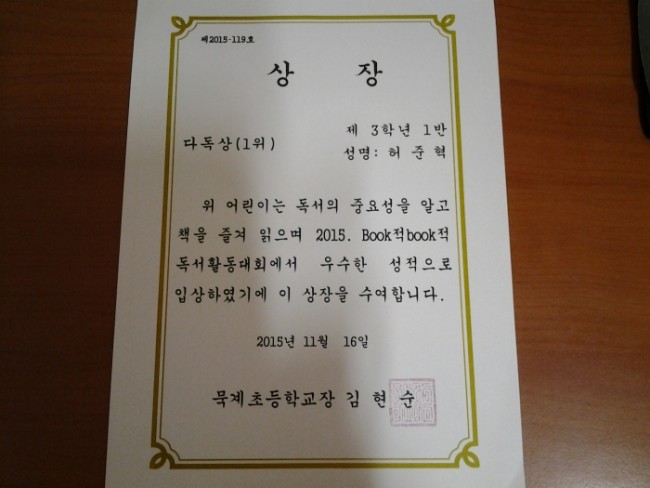 제2015-119호
상 장
제 3학년 1반
다독상(1위)
성명: 허 준 혁
위 어린이는 독서의 중요성을 알고
책을 즐겨 읽으며 2015. Book적book적
독서활동대회에서 우수한 성적으로
입상하였기에 이 상장을 수여합니다.
2015년 11월 16일
묵계초등학교장 김 현 순